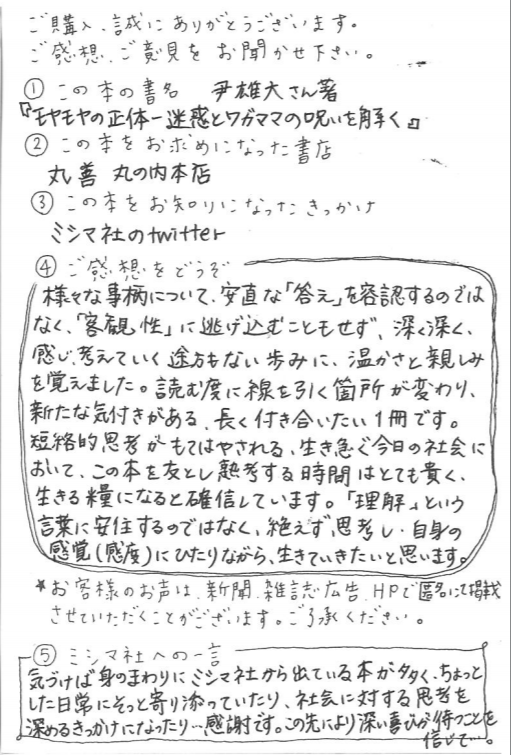 ご購入、誠にありがとうございます。
ご感想、ご意見をお聞かせ下さい。
① この本の書名 尹雄大さん著
『モヤモヤの正体ー迷惑とワガママの呪いを解く』
② この本をお求めになった書店
丸善 丸の内本店
③ この本をお知りになったきっかけ
ミシマ社のtwitter
④ ご感想をどうぞ
様々な事柄について、安直な「答え」を容認するのでは
なく、「客観性」に逃げ込むこともせず、深く深く、
感じ、考えていく途方もない歩みに、温かさと親しみ
を覚えました。読む度に線を引く箇所が変わり、
新たな気付きがある、長く付き合いたい1冊です。
短絡的思考がもてはやされる、生き急ぐ今日の社会に
おいて、この本を友とし熟考する時間はとても貴く、
生きる糧になると確信しています。「理解」という
言葉に安住するのではなく、絶えず思考し、自身の
感覚(感度)にひたりながら、生きていきたいと思います。
*お客様のお声は、新聞、雑誌広告、HPで匿名にて掲載
させていただくことがございます。ご了承ください。
⑤ ミシマ社への一言
気づけば身のまわりにミシマ社から出ている本が多く、ちょっと
した日常にそっと寄り添っていたり、社会に対する思考を
深めるきっかけになったり…感謝です。この先により深い喜びが待つことを
信じて…。